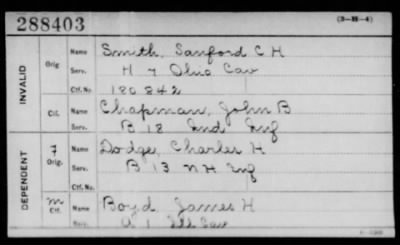 288403
(3-M-4)
INVALID
Orig. Name Smith, Sanford C H
Serv. H 7 Ohio Cav
Ctf. No. 180842
Ctf. Name Chapman, John B
Serv. B 12 Ind Inf
DEPENDENT
7 Orig. Name Dodge, Charles H
Serv. B 13 NH Inf
Ctf. No.
M Ctf. Name Boyd James H
Serv. A 1 Cav